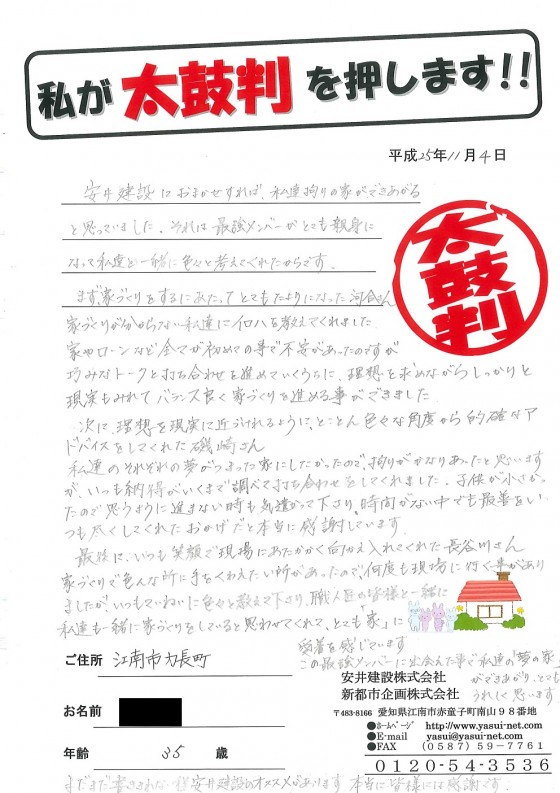 私が太鼓判を押します!!
平成25年11月4日
安井建設におまかせすれば、私達拘りの家ができあがる
と思っていました。それは最強メンバーがとても親身に
なって私達と一緒に色々と考えてくれたからです。
太鼓判
まず、家づくりをするにあたってとてもたよりになった河合さん
家づくりが分からない私達にイロハを教えてくれました
家やローンなど全てが初めての事で不安があったのですが
巧みなトークと打ち合わせを進めていくうちに、理想を求めながらしっかりと
現実もみれてバランス良く家づくりを進める事ができました
次に、理想を現実に近づけれるように、とことん色々な角度から的確なア
ドバイスをしてくれた磯崎さん
私達のそれぞれの夢がつまった家にしたかったので、拘りがかなりあったと思います
が、いつも納得がいくまで調べて打ち合わせをしてくれました。子供が小さか
たので思うように進まない時も気遣がって下さり、時間がない中でも最善をい
つも尽くしてくれたおかげだと本当に感謝しています。
最後に、いつも笑顔で現場にあたたかく向かえ入れてくれた長谷川さん
家づくりで色んな所に手をくわえたい所があったので、何度も現場に行く事があり
ましたが、いつもていねいに色々と教えて下さり、職人の皆様と一緒に
私達も一緒に家づくりをしていると思わせてくれて、とても「家」に
愛着を感じています
この最強メンバーに出会えた事で私達の「夢の家」
ができあがり、とても
うれしく思います
ご住所 江南市力長町
お名前
年齢 35 歳
安井建設株式会社
新都市企画株式会社
〒483-8166 愛知県江南市赤童子町南山98番地
●ホームページ http://www.yasui-net.com
●E-mail yasui@yasui-net.com
●FAX (0587)59-7761
0120-54-3536
まだまだ書ききれない程安井建設のオススメがあります 本当に皆様には感謝です。